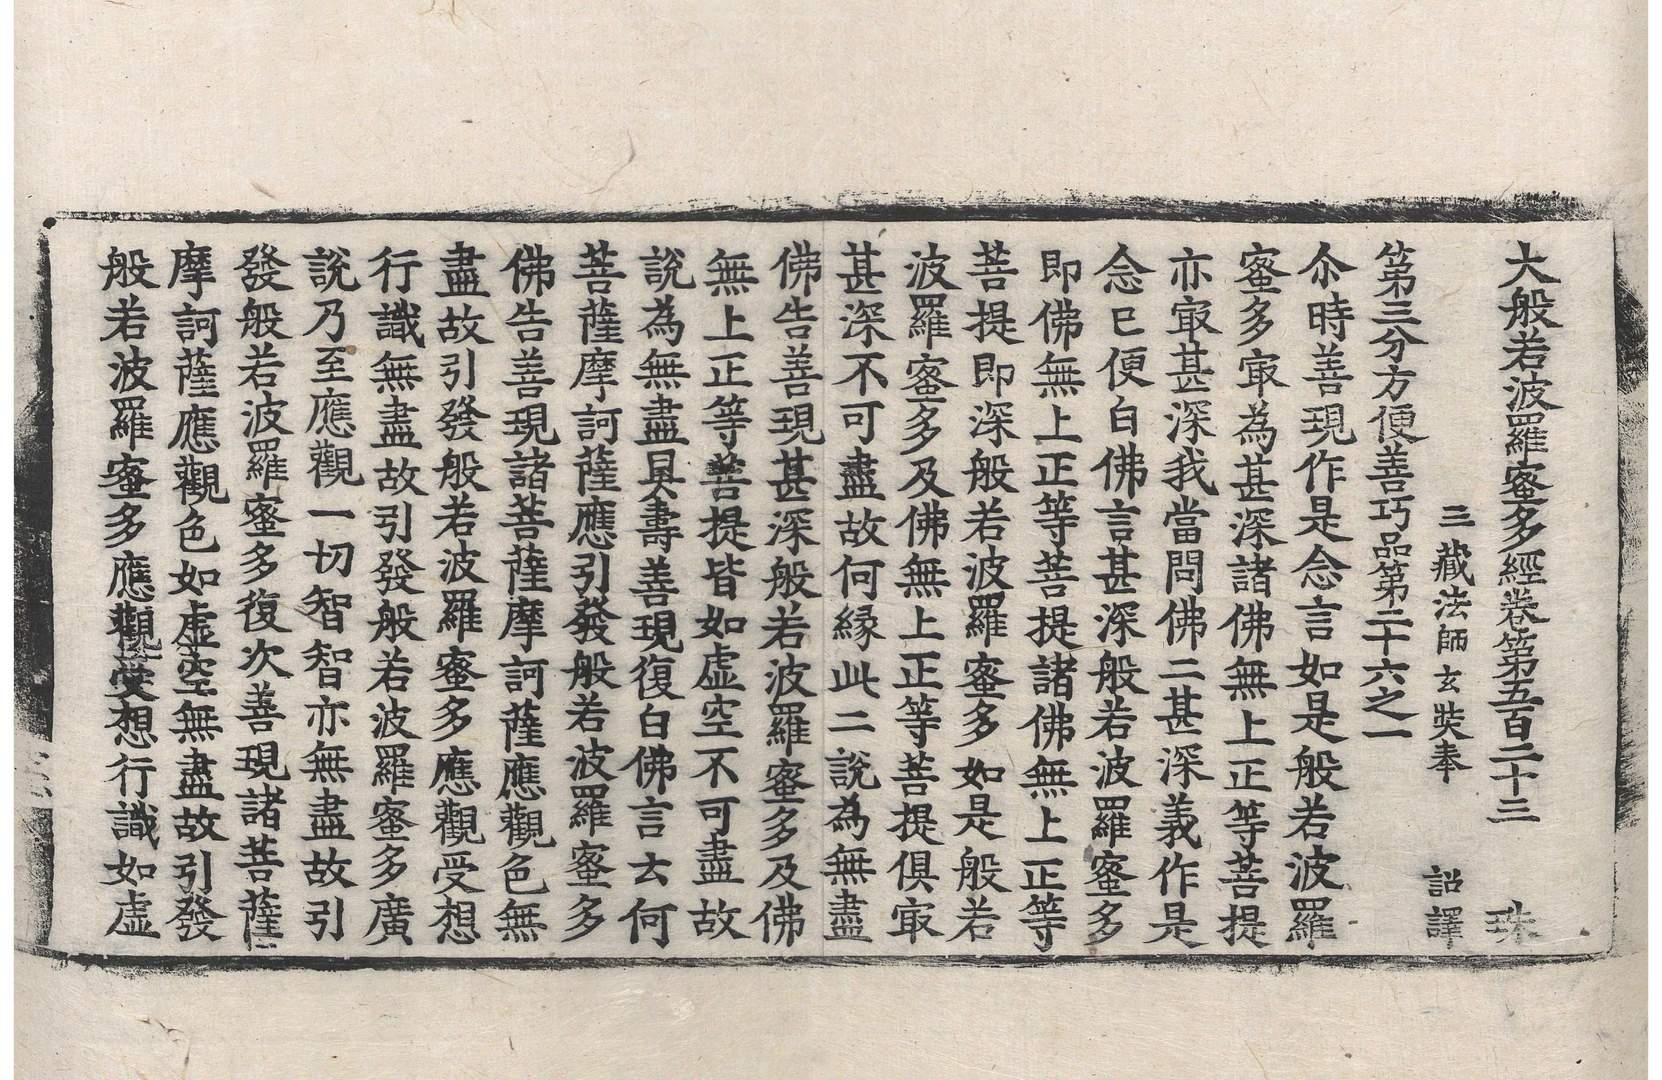 大般若波羅蜜多經卷第五百二十三　珠
三藏法師玄奘奉　詔譯
第三分方便善巧品第二十六之一
尒時善現作是念言如是般若波羅
蜜多㝡為甚深諸佛無上正等菩提
亦㝡甚深我當問佛二甚深義作是
念已便白佛言甚深般若波羅蜜多
即佛無上正等菩提諸佛無上正等
菩提即深般若波羅蜜多如是般若
波羅蜜多及佛無上正等菩提俱㝡
甚深不可盡故何緣此二說為無盡
佛告善現甚深般若波羅蜜多及佛
無上正等菩提皆如虛空不可盡故
說為無盡具壽善現復白佛言云何
菩薩摩訶薩應引發般若波羅蜜多
佛告善現諸菩薩摩訶薩應觀色無
盡故引發般若波羅蜜多應觀受想
行識無盡故引發般若波羅蜜多廣
說乃至應觀一切智智亦無盡故引
發般若波羅蜜多復次善現諸菩薩
摩訶薩應觀色如虛空無盡故引發
般若波羅蜜多應觀受想行識如虛